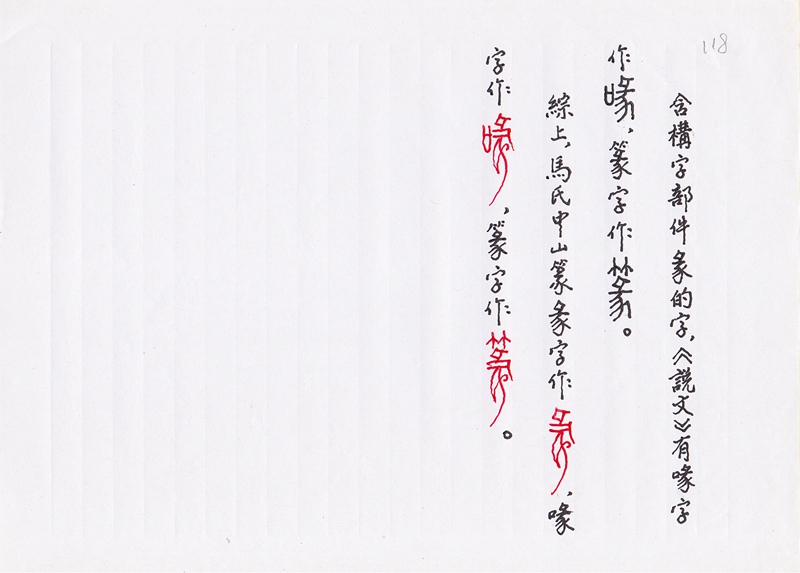 118
含構字部件彖的字，《說文》有喙字
作喙，篆字作篆。
綜上，馬氏中山篆彖字作彖，喙
字作喙，篆字作篆。